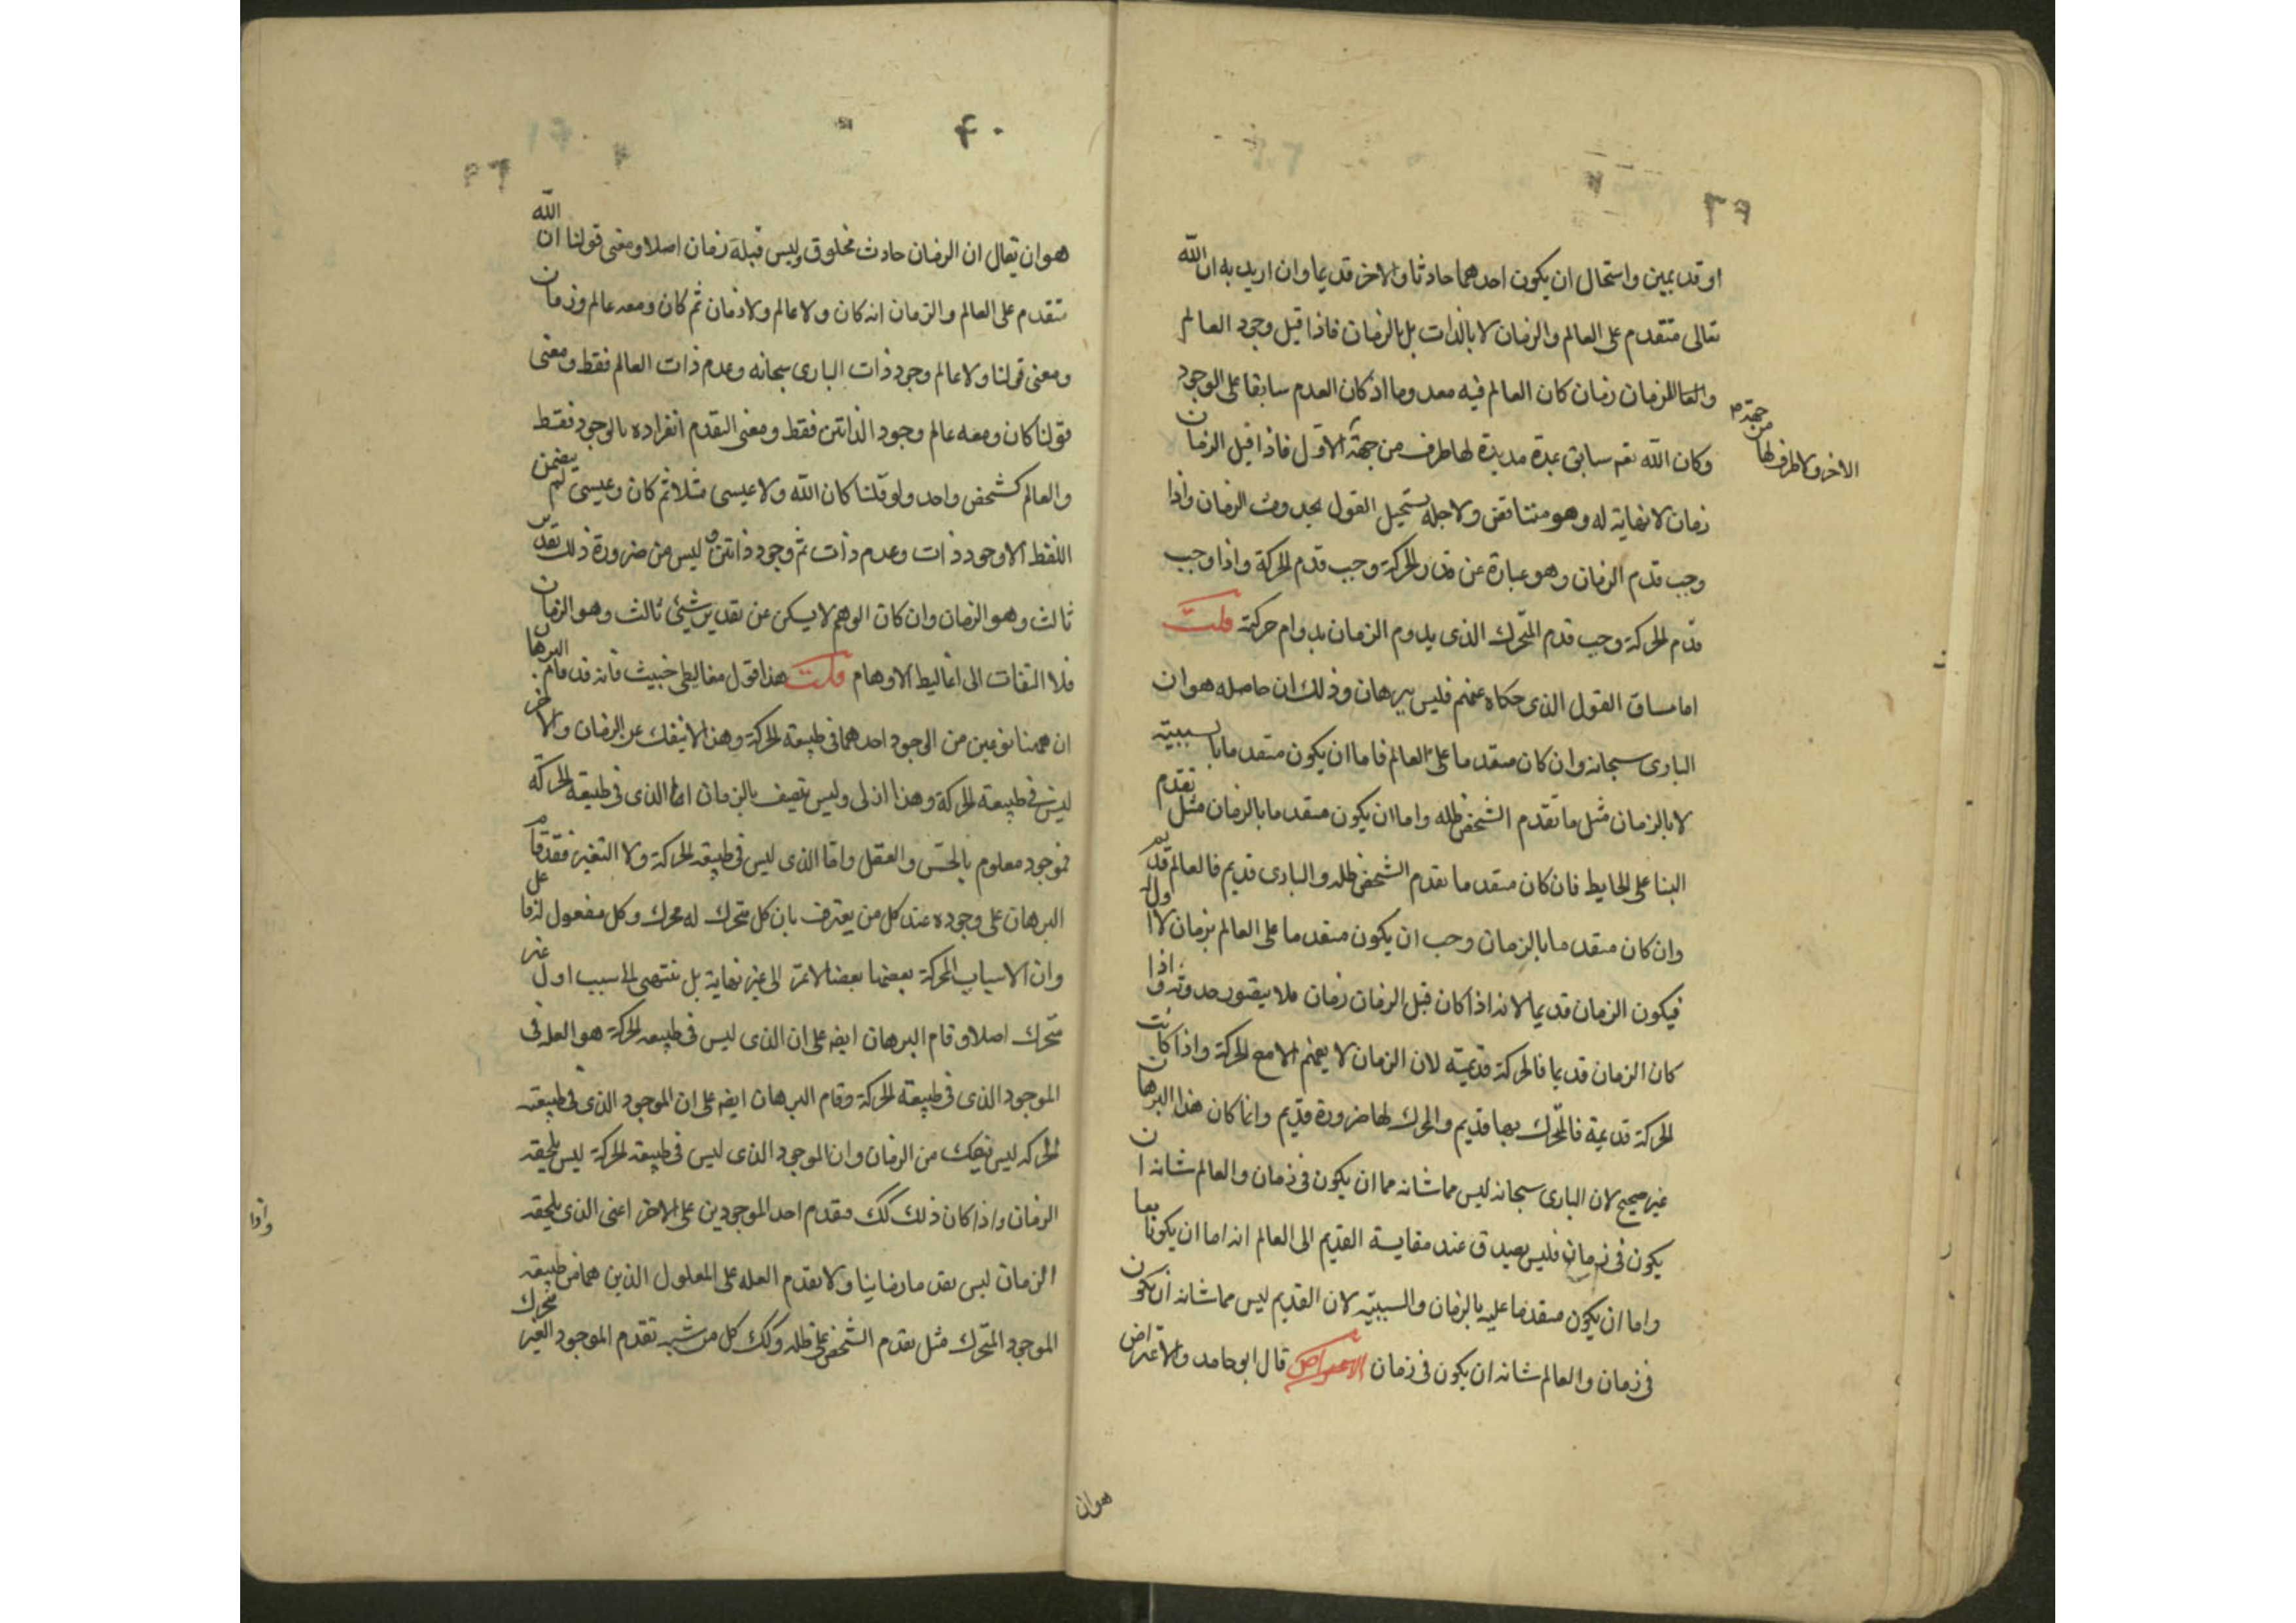 او قديمين واستحال ان يكون احدهما حادثا والاخر قديما وان اريد به ان الله
تعالى متقدم على العالم والزمان لا بالذات بل بالزمان فاذا قبل وجود العالم
والزمان زمان كان العالم فيه معدوما اذ كان العدم سابقا على الوجود
وكان الله تعم سابق بمدة مديدة لها طرف من جهة الاول فاذا قبل الزمان
من جهة
الاخر ولا طرف لها
زمان لا نهاية له وهو متناقض ولاجله يستحيل القول بحدوث الزمان واذا
وجب قدم الزمان وهو عبارة عن قدر الحركة وجب قدم الحركة واذا وجب
قدم الحركة وجب قدم المتحرك الذى يدوم الزمان بدوام حركته قلت
اما مساق القول الذى حكاه عنهم فليس ببرهان وذلك ان حاصله هو ان
البارى سبحانه وان كان متقدما على العالم فاما ان يكون متقدما بالسببية
لا بالزمان مثل ما تقدم الشخص ظله واما ان يكون متقدما بالزمان مثل تقدم
البنا على الحايط فان كان متقدما تقدم الشخص ظله والبارى قديم فالعالم قديم
وان كان متقدما بالزمان وجب ان يكون متقدما على العالم بزمان لا اول له
فيكون الزمان قديما لانه اذا كان قبل الزمان زمان فلا يتصور حدوثه واذا
كان الزمان قديما فالحركة قديمة لان الزمان لا يفهم الا مع الحركة واذا كانت
الحركة قديمة فالمتحرك بها قديم والمحرك لها ضرورة قديم وانما كان هذا البرهان
غير صحيح لان البارى سبحانه ليس مما شانه مما ان يكون فى زمان والعالم شانه ان
يكون فى زمان فليس يصدق عند مقايسة القديم الى العالم انه اما ان يكونا معا
واما ان يكون متقدما عليه بالزمان والسببية لان القديم ليس مما شانه ان يكون
فى زمان والعالم شانه ان يكون فى زمان الاعتراض قال ابو حامد والاعتراض
هو ان
٤٠
هو ان يقال ان الزمان حادث مخلوق وليس قبله زمان اصلا ومعنى قولنا ان الله
متقدم على العالم والزمان انه كان ولا عالم ولا زمان ثم كان ومعه عالم وزمان
ومعنى قولنا ولا عالم وجود ذات البارى سبحانه وعدم ذات العالم فقط ومعنى
قولنا كان ومعه عالم وجود الذاتين فقط ومعنى التقدم انفراده بالوجود فقط
والعالم كشخص واحد ولو قلنا كان الله ولا عيسى مثلا ثم كان وعيسى لم يضمن
اللفظ الا وجود ذات وعدم ذات ثم وجود ذاتين وليس من ضرورة ذلك تقدير
ثالث وهو الزمان وان كان الوهم لا يسكن عن تقدير شيئ ثالث وهو الزمان
فلا التفات الى اغاليط الاوهام قلت هذا قول مغاليطى خبيث فانه قد قام البرهان
ان ههنا نوعين من الوجود احدهما فى طبيعته الحركة وهذا لا ينفك عن الزمان والاخر
ليس فى طبيعته الحركة وهذا ازلى وليس يتصف بالزمان اما الذى فى طبيعته الحركة
فموجود معلوم بالحس والعقل واما الذى ليس فى طبيعته الحركة ولا التغير فقد قام
البرهان على وجوده عند كل من يعترف بان كل متحرك له محرك وكل مفعول له فاعل
وان الاسباب المحركة بعضها بعضا لا تمر الى غير نهاية بل تنتهى الى سبب اول غير
متحرك اصلا وقام البرهان ايضه على ان الذى ليس فى طبيعته الحركة هو العلة فى
الموجود الذى فى طبيعته الحركة وقام البرهان ايضه على ان الموجود الذى فى طبيعته
الحركة ليس ينفك من الزمان وان الموجود الذى ليس فى طبيعته الحركة ليس يلحقه
الزمان واذا كان ذلك كك فتقدم احد الموجودين على الاخر اعنى الذى يلحقه
الزمان ليس تقدما زمانيا ولا تقدم العلة على المعلول الذين هما من طبيعته
الموجود المتحرك مثل تقدم الشخص على ظله وكك كل من شبه تقدم الموجود الغير متحرك
واذا